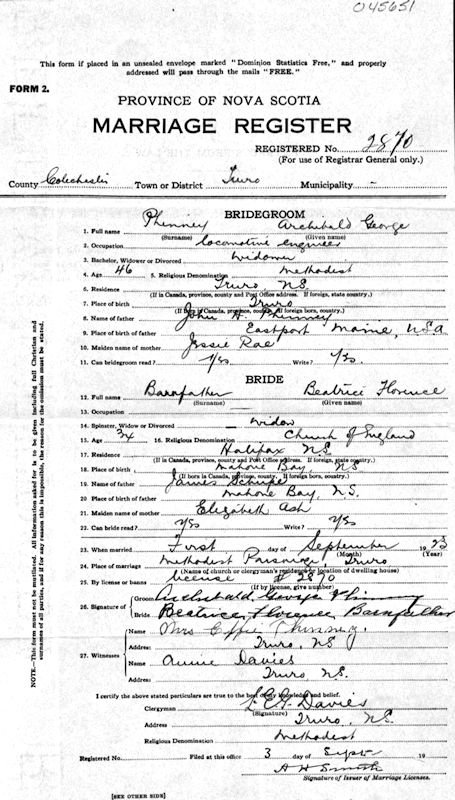 045651
This form if placed in an unsealed envelope marked "Dominion Statistics Free," and properly
addressed will pass through the mails "FREE."
FORM 2.
PROVINCE OF NOVA SCOTIA
MARRIAGE REGISTER
REGISTERED No. 2870
(For use of Registrar General only.)
County Colchester Town or District Truro Municipality -
BRIDEGROOM
1. Full name Phinney Archibald George
(Surname) (Given name)
2. Occupation locomotive engineer
3. Bachelor, Widower or Divorced widower
4. Age 46 5. Religious Denomination Methodist
6. Residence Truro N.S.
(If in Canada, province, county and Post Office address. If foreign, state country.)
7. Place of birth Truro
(If born in Canada, province, county. If foreign born, country.)
8. Name of father John H. Phinney
9. Place of birth of father Eastport Maine, USA
10. Maiden name of mother Jessie Rae
11. Can bridegroom read? Yes Write? Yes
BRIDE
12. Full name Barnfather Beatrice Florence
(Surname) (Given name)
13. Occupation —
14. Spinster, Widow or Divorced — widow
15. Age 34 16. Religious Denomination Church of England
17. Residence Halifax NS
(If in Canada, province, county and Post Office address. If foreign, state country.)
18. Place of birth Mahone Bay, NS
(If born in Canada, province, county. If foreign born, country.)
19. Name of father James
20. Place of birth of father Mahone Bay, N.S.
21. Maiden name of mother Elizabeth Ash
22. Can bride read? Yes Write? Yes
23. When married First day of September 1923
(Month) (Year)
24. Place of marriage Methodist Parsonage Truro
(Name of church or clergyman's residence or location of dwelling house)
25. By license or banns License # 2870
(If by license, give number)
26. Signature of Groom Archibald George Phinney
Bride Beatrice Florence Barnfather
27. Witnesses Name Mrs Effie Phinney.
Address Truro, NS
Name Annie Davies
Address Truro NS.
I certify the above stated particulars are true to the best of my knowledge and belief.
Clergyman Davies
(Signature)
Address Truro, NS.
Religious Denomination Methodist
Registered No. Filed at this office 3 day of Sept 19
A H Smith
Signature of Issuer of Marriage Licenses.
[SEE OTHER SIDE]
NOTE—This form must not be mutilated. All information asked for is to be given including full Christian and
surnames of all parties, and if for any reason this is impossible, the reason for the omission must be stated.